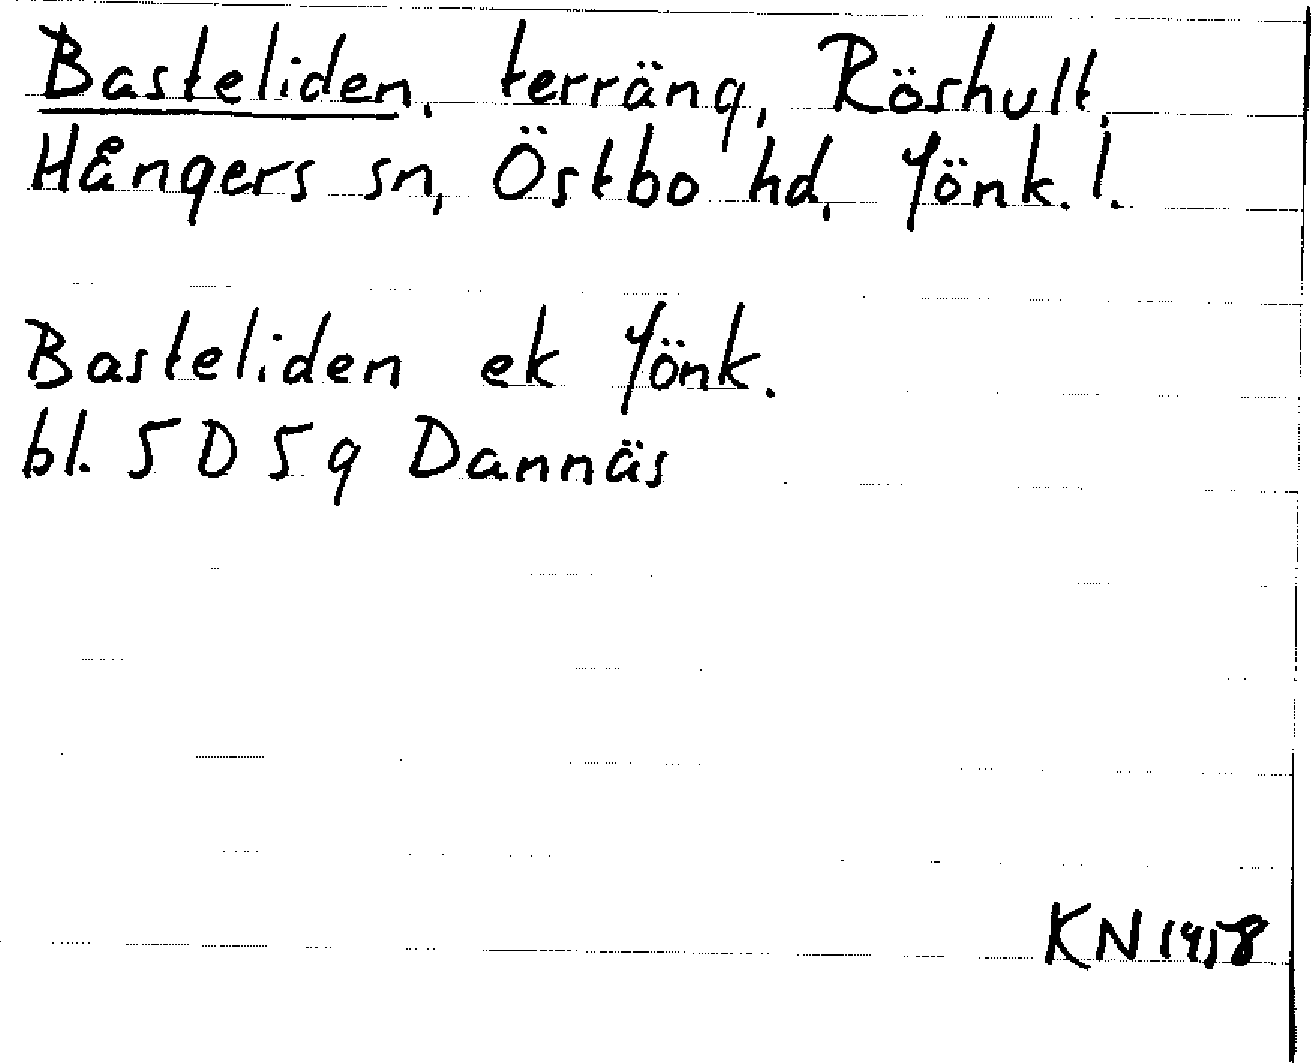 Basteliden, terräng, Röshult,
Hångers sn, Östbo hd, Jönk. l.
Basteliden ek Jönk.
bl. 5 D 5 g Dannäs
KN 1958